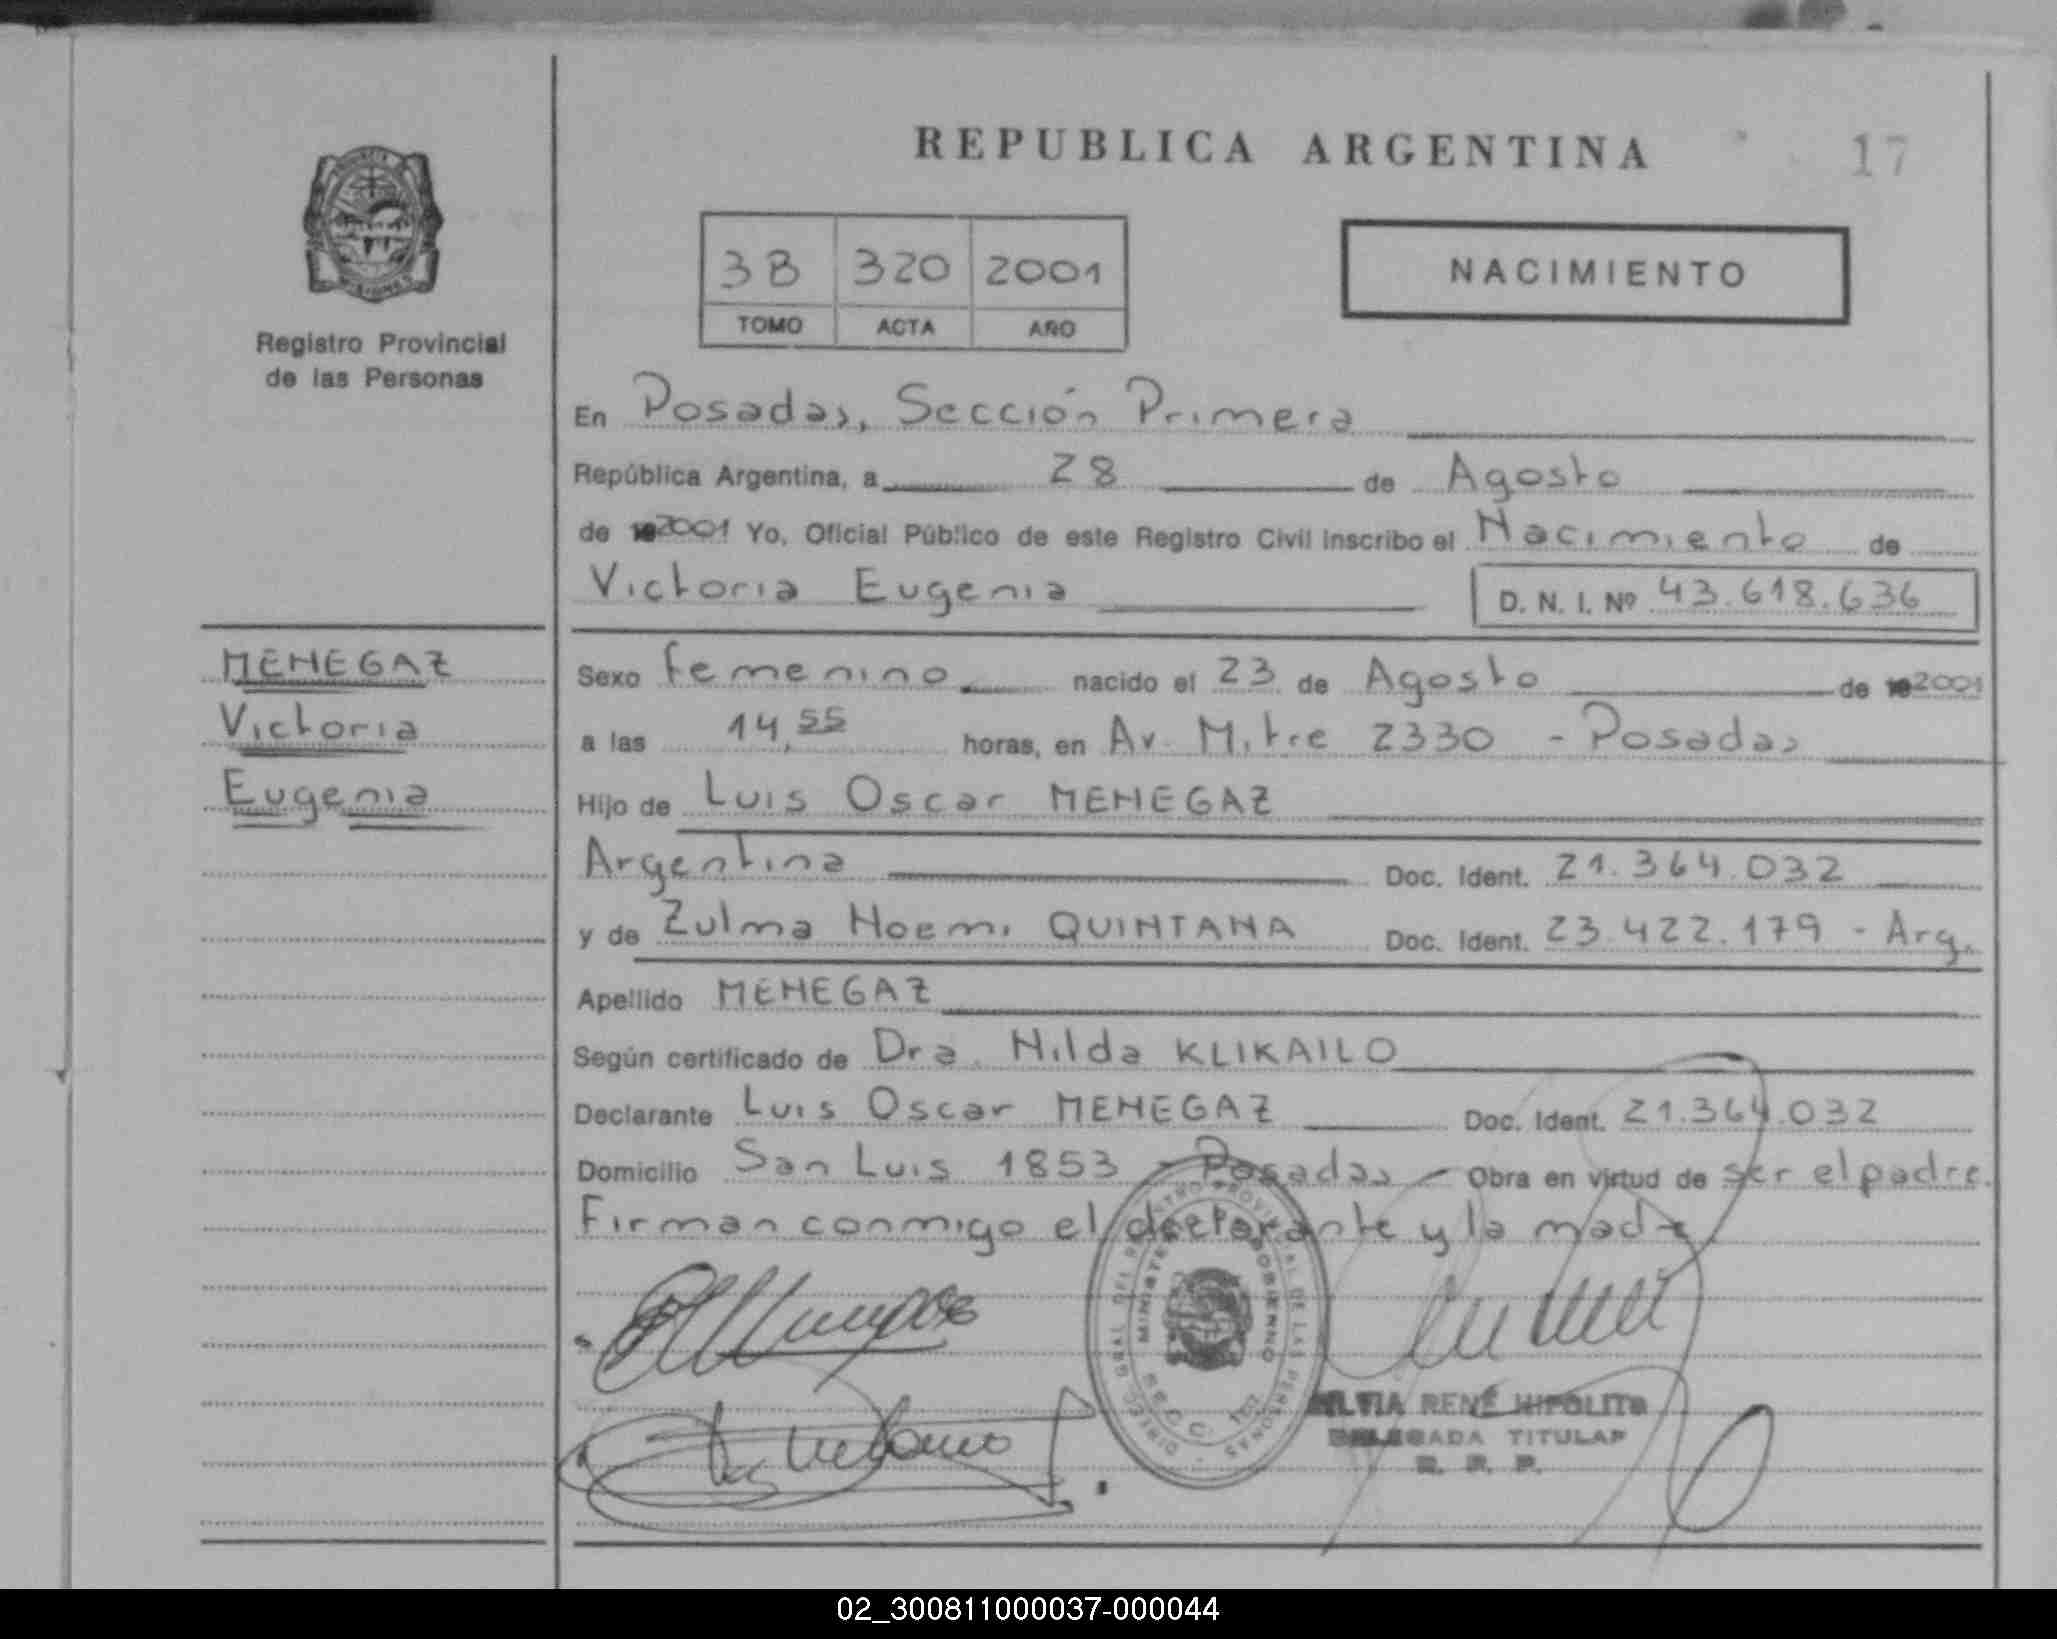 REPUBLICA ARGENTINA
17
3B 320 2001
TOMO ACTA AÑO
NACIMIENTO
Registro Provincial
de las Personas
En Posadas, Sección Primera
República Argentina, a 28 de Agosto
de 2001 Yo, Oficial Público de este Registro Civil inscribo el Nacimiento de
Victoria Eugenia D. N. I. Nº 43.618.636
MENEGAZ
Victoria
Eugenia
Sexo femenino nacido el 23 de Agosto de 2001
a las 14,55 horas, en Av. Mitre 2330 - Posadas
Hijo de Luis Oscar MENEGAZ
Argentina Doc. Ident. 21.364.032
y de Zulma Noemi QUINTANA Doc. Ident. 23.422.179 - Arg.
Apellido MENEGAZ
Según certificado de Dra. Hilda KLIKAILO
Declarante Luis Oscar MENEGAZ Doc. Ident. 21.364.032
Domicilio San Luis 1853 - Posadas - Obra en virtud de ser el padre.
Firman conmigo el declarante y la madre
MINISTERIO GOBIERNO
SILVIA RENÉ HIPOLITO
DELEGADA TITULAR
R. P. P.
02_300811000037-000044